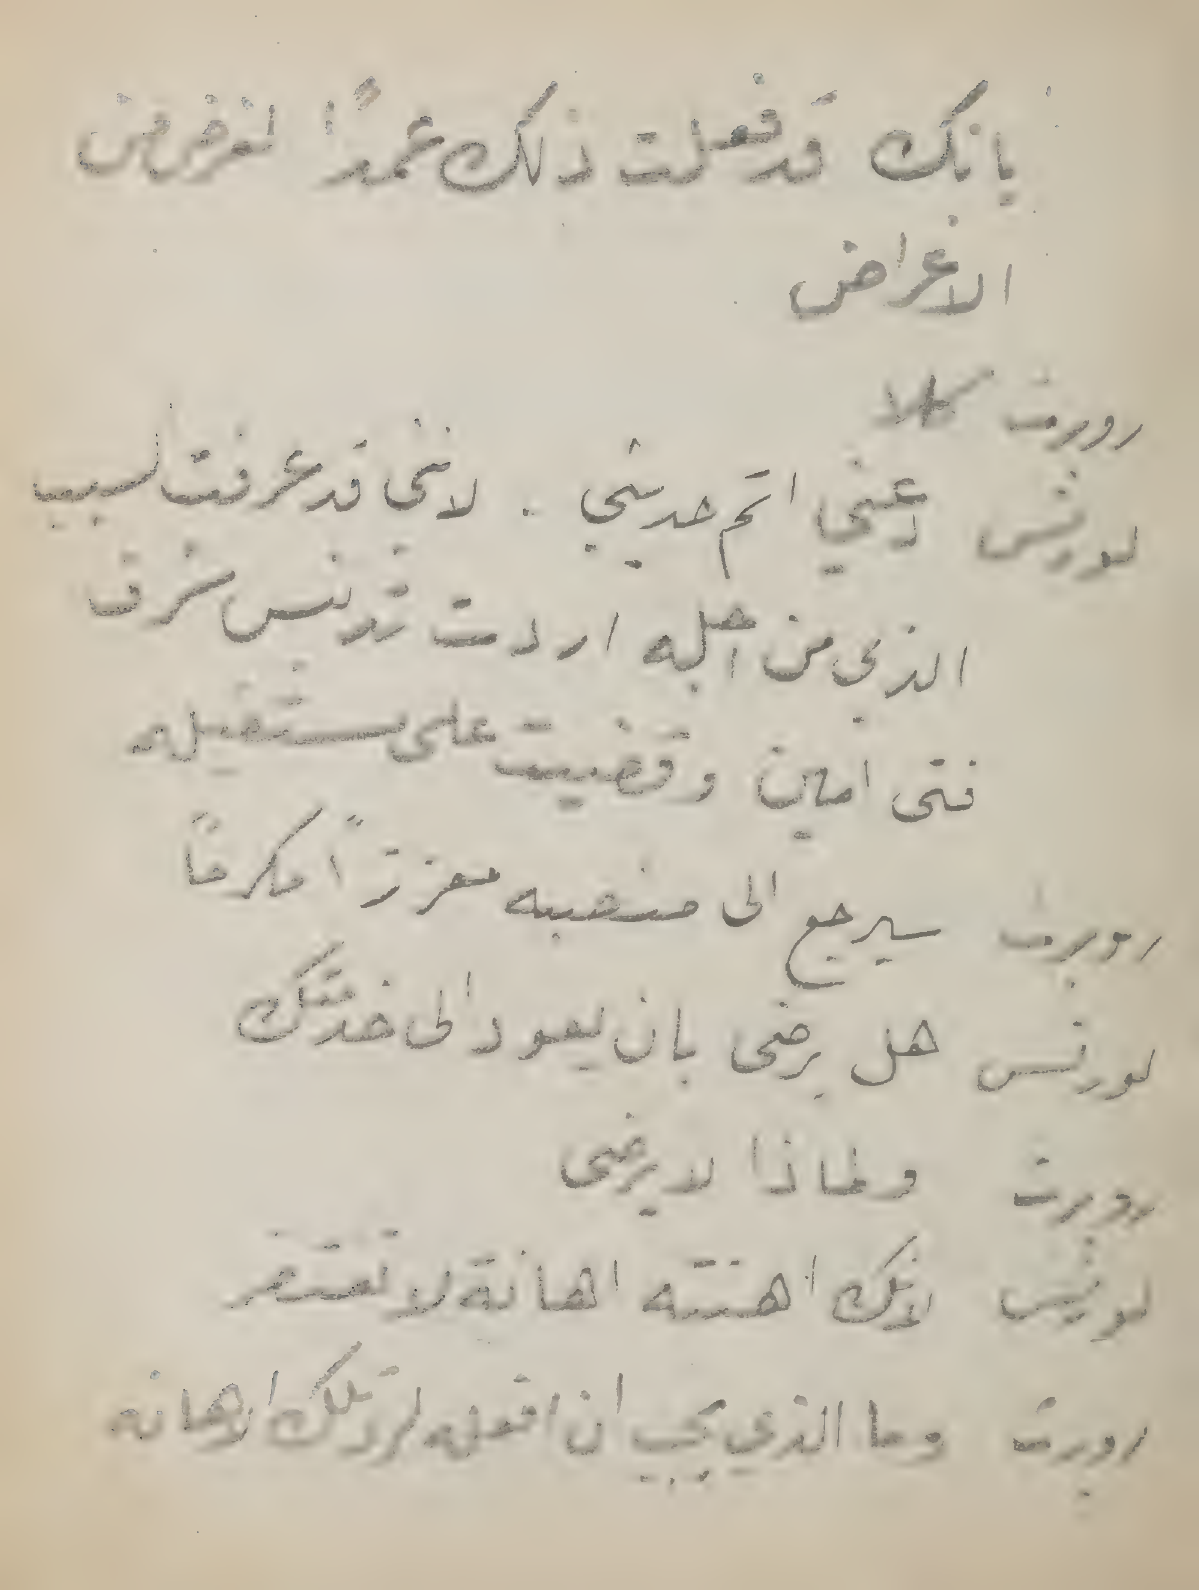 بانك قد فعلت ذلك عمداً لغرض من
الاغراض
روبرت كلا
لورنس دعني اتم حديثي . لانني قد عرفت السبب
الذي من اجله اردت تدنيس شرف
فتى امين وقضيت على مستقبله
روبرت سيرجع الى منصبه معززاً مكرماً
لورنس هل يرضى بان يعود الى خدمتك
روبرت ولماذا لا يرضى
لورنس لانك اهنته اهانة لا تغتفر
روبرت وما الذي يجب ان افعله لرد تلك الاهانه